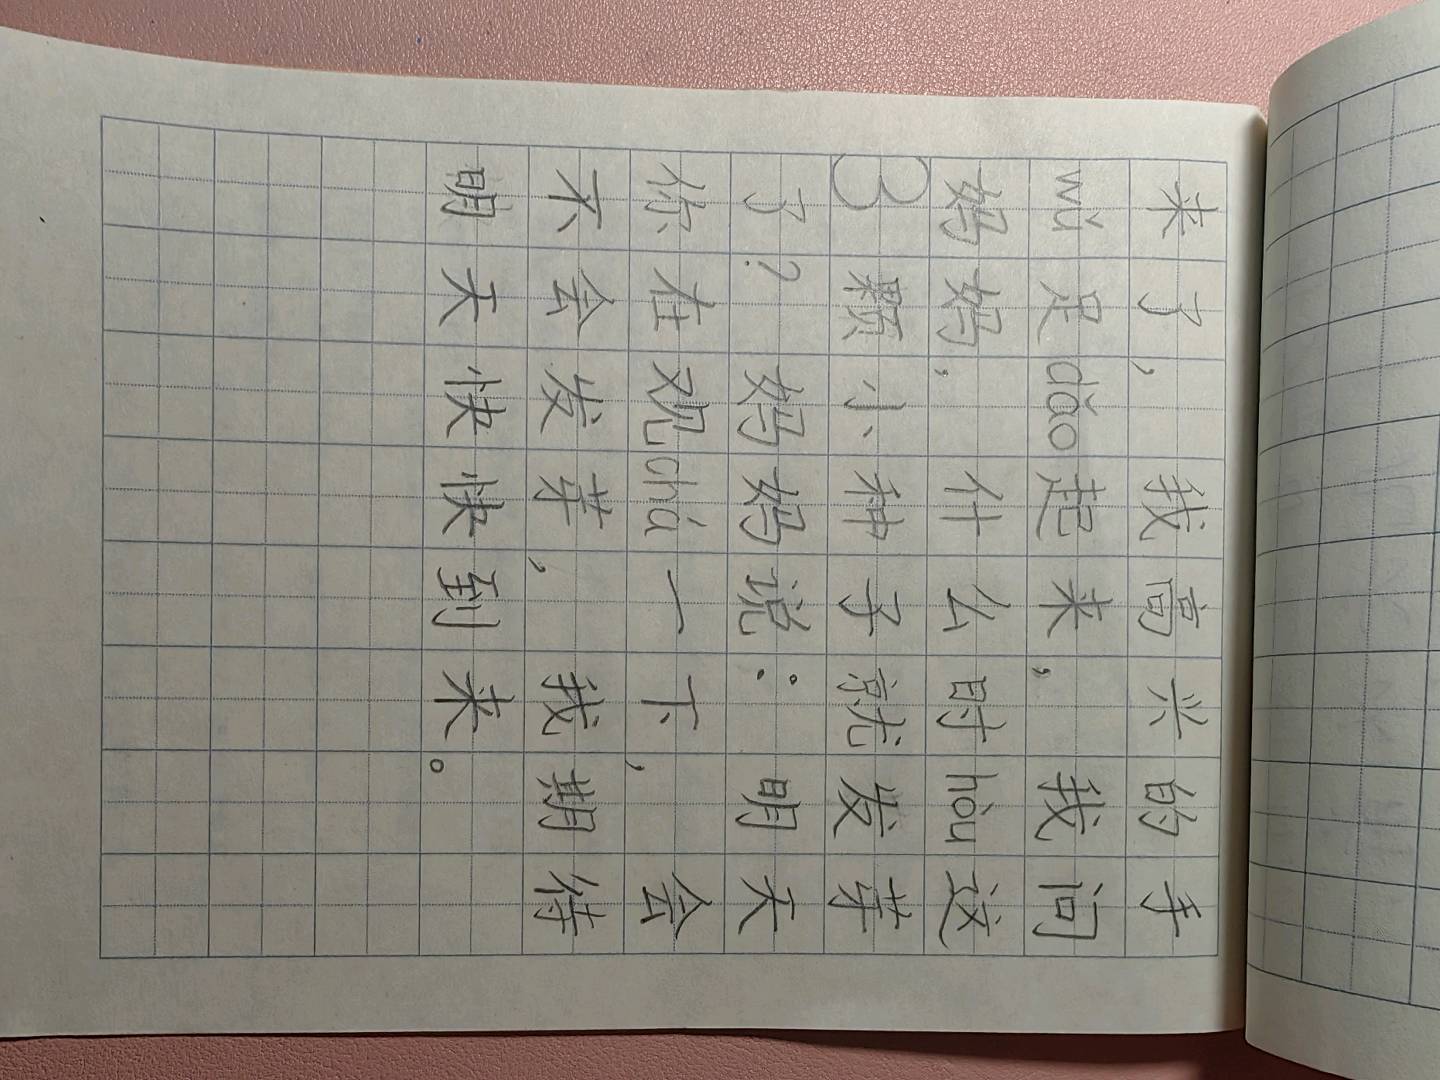 来了，我高兴的手
wǔ足dǎo起来，我问
妈妈，什么时hòu这
3颗小种子就发芽
了？妈妈说：明天
你在观chá一下，会
不会发芽，我期待
明天快快到来。